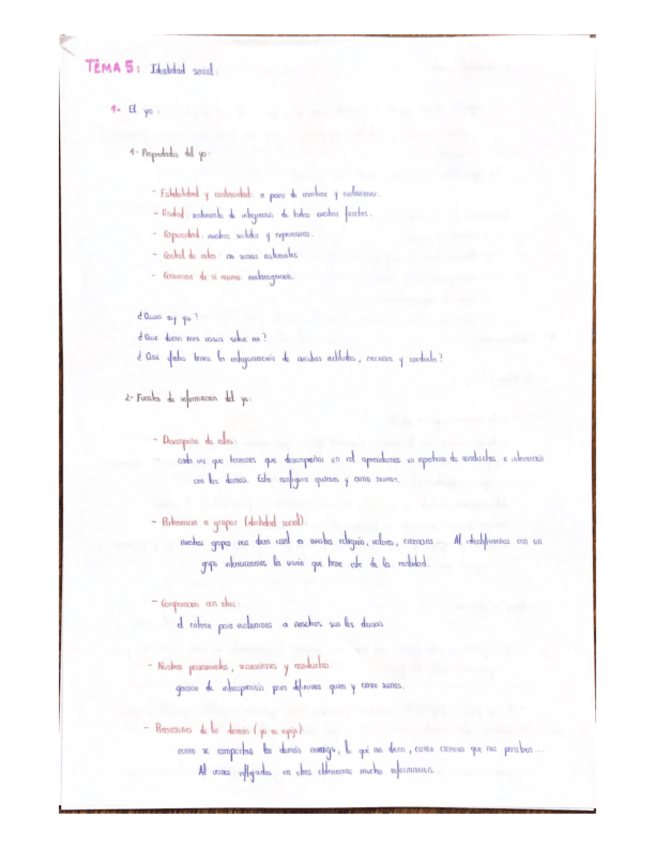 TEMA 5: Identidad social.
1- El yo:
1- Propiedades del yo:
- Estabilidad y continuidad: a pesar de cambiar y evolucionar.
- Unidad: sentimiento de integración de todas nuestras facetas.
- Corporeidad: nuestros sentidos y expresiones.
- Control de actos: no somos automatas
- Conciencia de si mismo:
¿Quien soy yo?
¿Que dicen mis cosas sobre mi?
¿Que efectos tienen la configuración de nuestras actitudes, creencias y conducta?
2- Fuentes de información del yo:
- Descripción de roles:
cada vez que tenemos que desempeñar un rol aprendemos un repertorio de conductas e interacción
con los demás. Esto configura quienes y como somos.
- Pertenencia a grupos (identidad social):
nuestros grupos nos dicen cual es nuestra religión, valores, creencias... Al identificarnos con un
grupo interiorizamos la visión que tiene este de la realidad.
- Comparacion con otros:
el criterio para evaluarnos a nosotros son los demás
- Nuestros pensamientos, emociones y conductas:
ejercicio de introspección para definirnos quien y como somos.
- Reacciones de los demás (yo en espejo):
como se comportan los demás conmigo, lo que me dicen, como creemos que nos perciben...
Al vernos reflejados en otros obtenemos mucha información.